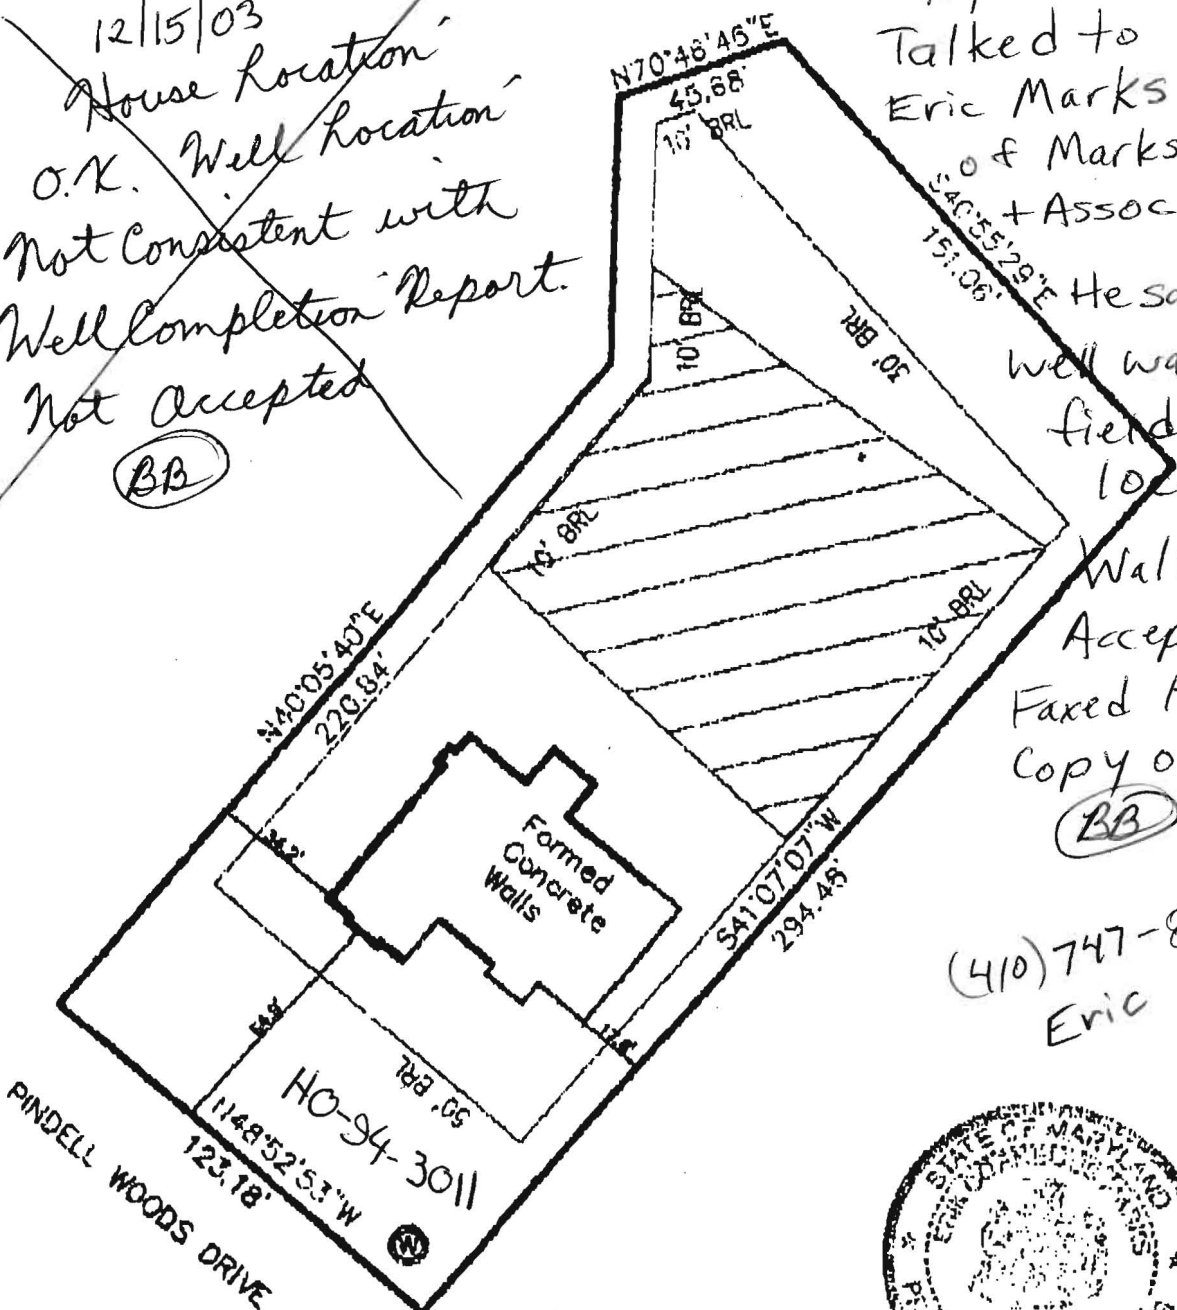 12/15/03
House Location
O.K. Well Location
Not Consistent with
Well Completion Report.
Not Accepted
BB
Talked to
Eric Marks
of Marks
+ Assoc
He
Well
field
Faxed
Copy
BB
(410) 747-
Eric
N70°46'46"E
45.68'
10' BRL
S40°55'29"E
151.06'
30' BRL
10' BRL
10' BRL
10' BRL
N40°05'40"E
220.84'
Formed
Concrete
Walls
S41°07'07"W
294.48'
34.2'
50' BRL
HO-94-3011
N48°52'53"W
123.18'
W
PINDELL WOODS DRIVE
STATE OF MARYLAND